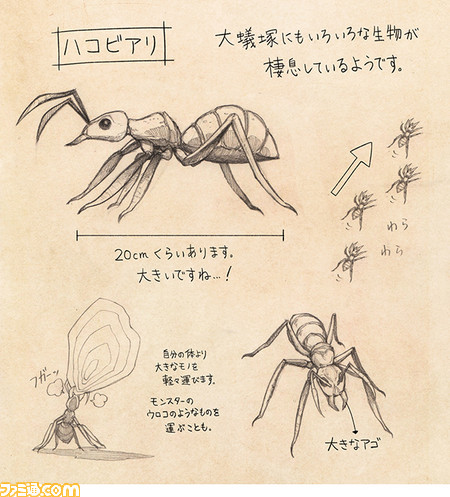 ハコビアリ
大蟻塚にもいろいろな生物が
棲息しているようです。
わら
わら
20cmくらいあります。
大きいですね…!
フガーッ
自分の体より
大きなモノを
軽々運びます。
モンスターの
ウロコのようなものを
運ぶことも。
大きなアゴ
ファミ通.com